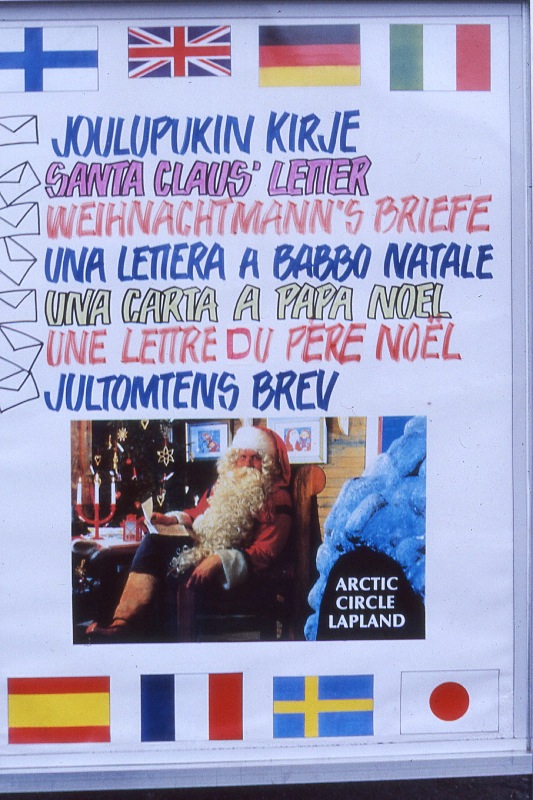 JOULUPUKIN KIRJE
SANTA CLAUS' LETTER
WEIHNACHTMANN'S BRIEFE
UNA LETTERA A BABBO NATALE
UNA CARTA A PAPA NOEL
UNE LETTRE DU PÈRE NOËL
JULTOMTENS BREV
ARCTIC
CIRCLE
LAPLAND